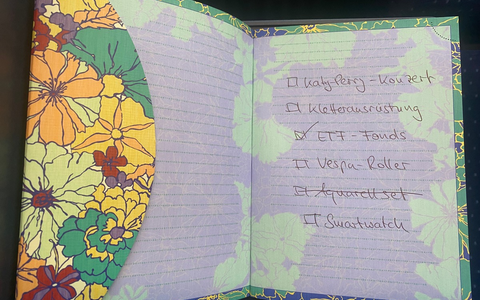 ☐ Katy-Perry-Konzert
☐ Kletterausrüstung
☑ ETF-Fonds
☐ Vespa-Roller
☐ Aquarellset
☐ Smartwatch